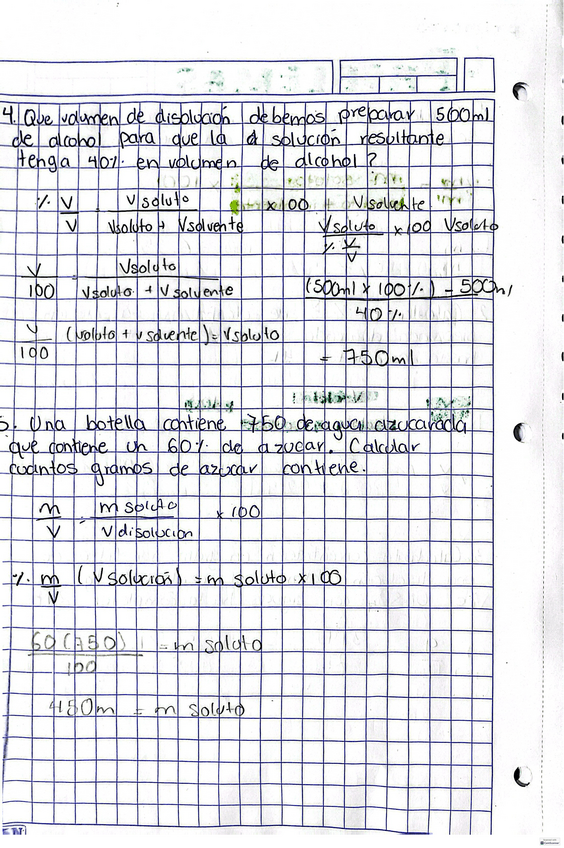 4. Que volumen de disolución debemos preparar 500ml
de alcohol para que la solución resultante
tenga 40% en volumen de alcohol?
% V/V = Vsoluto / Vsoluto + Vsolvente × 100
V/100 = Vsoluto / Vsoluto + Vsolvente
V/100 (Vsoluto + vsolvente) = Vsoluto
Vsolvente
Vsoluto / % V/V × 100 Vsoluto
(500ml × 100%) - 500ml / 40%
= 750ml
5. Una botella contiene 750 de agua azucarada
que contiene un 60% de azucar. Calcular
cuantos gramos de azucar contiene.
m/V = m soluto / V disolucion × 100
% m/V (V solución) = m soluto × 100
60 (750) / 100 = m soluto
450m = m soluto